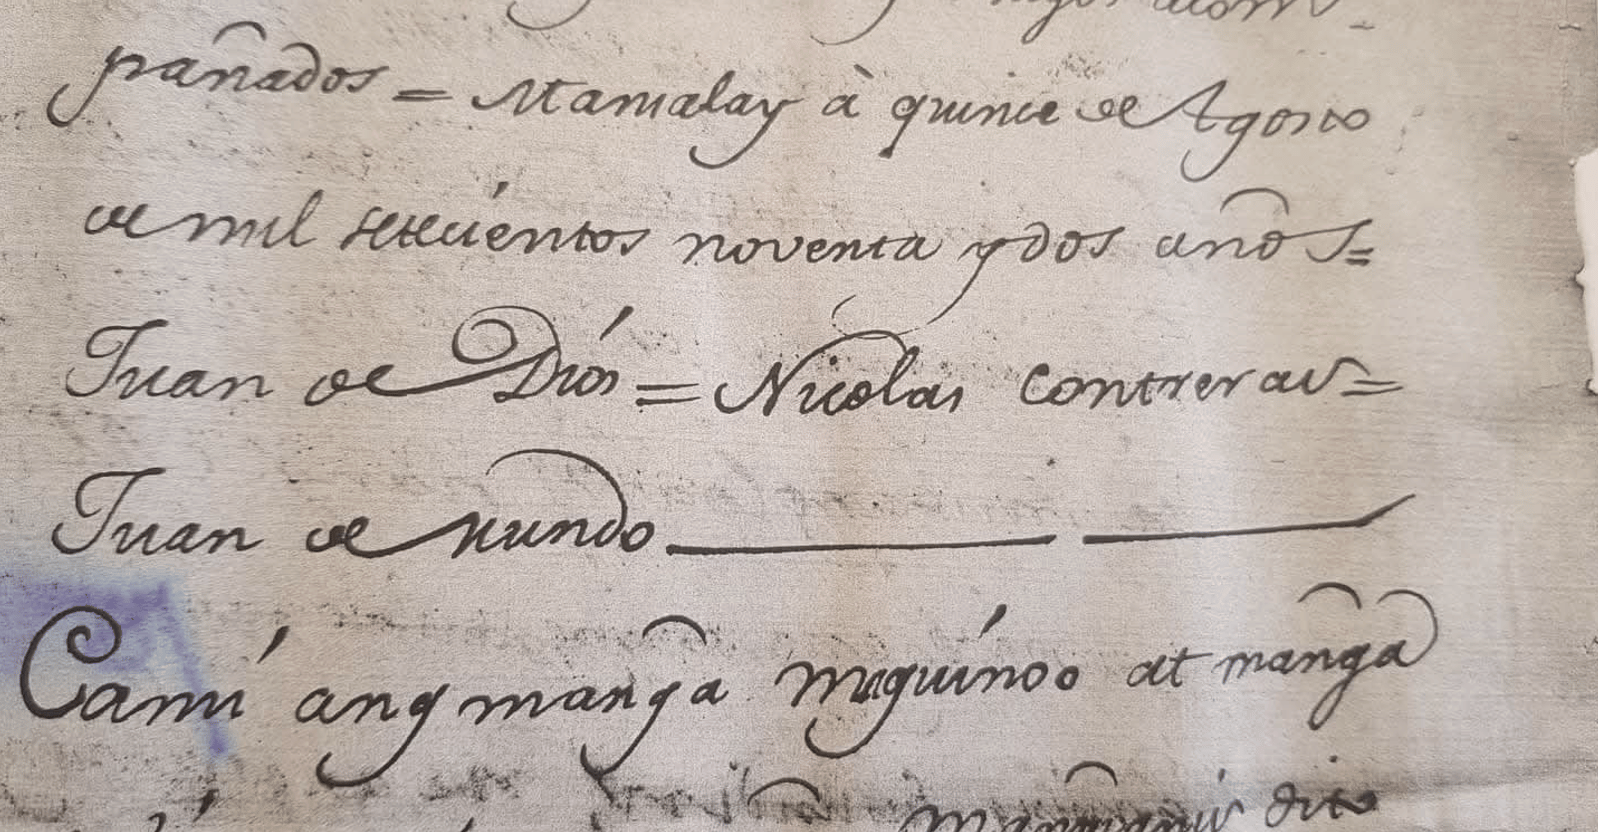 pañados = Mamalay à quince de Agosto
de mil setecientos noventa y dos años=
Juan de Diós = Nicolas Contreras=
Juan de Mundo
Camí ang manga maguínoo at manga
dito